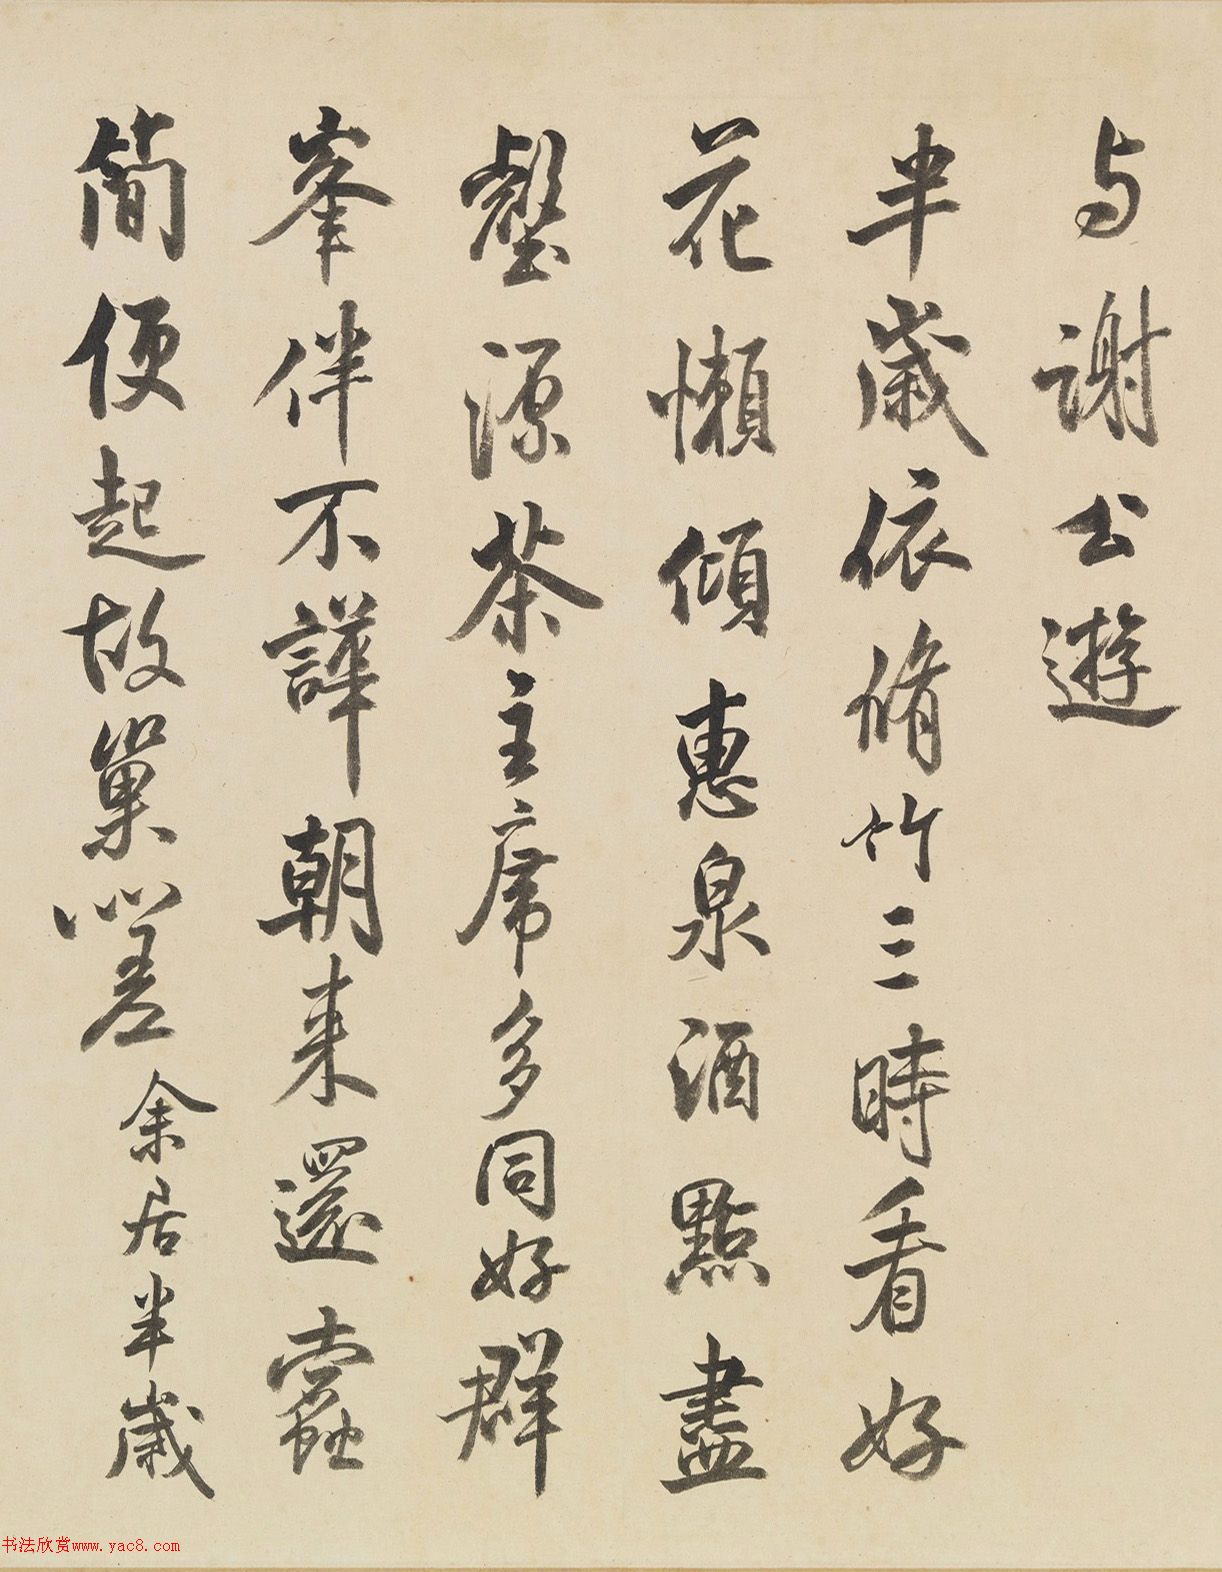 与谢公遊
半歲依脩竹三時看好
花懶傾惠泉酒點盡
壑源茶主席多同好群
峯伴不譁朝来還蠹
簡便起故巢嗟余居半歲
书法欣赏www.yac8.com